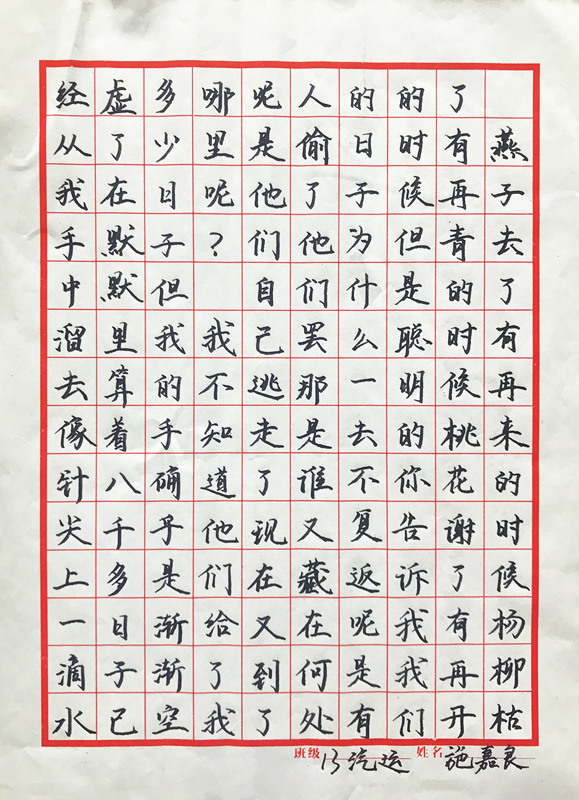 燕子去了有再来的时候杨柳枯
了有再青的时候桃花谢了有再开
的时候但是聪明的你告诉我我们
的日子为什么一去不复返呢是有
人偷了他们罢那是谁又藏在何处
呢是他们自己逃走了现在又到了
哪里呢？ 我不知道他们给了我
多少日子但我的手确乎是渐渐空
虚了在默默里算着八千多日子已
经从我手中溜去像针尖上一滴水
班级 13汽运 姓名 施嘉良